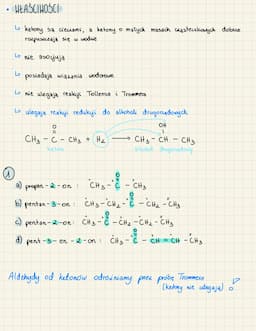 • WŁAŚCIWOŚCI
↳ ketony są cieczami, a ketony o małych masach cząsteczkowych dobrze
rozpuszczają się w wodzie
↳ nie asocjują
↳ posiadają wiązania wodorowe
↳ nie ulegają reakcji Tollensa i Trommera
↳ ulegają reakcji redukcji do alkoholi drugorzędowych
O OH
CH₃ - C - CH₃ + H₂ → CH₃ - CH - CH₃
keton alkohol drugorzędowy
①
a) propan-2-on: CH₃ - C - CH₃
O
b) pentan-3-on: CH₃ - CH₂ - C - CH₂ - CH₃
O
c) pentan-2-on: CH₃ - C - CH₂ - CH₂ - CH₃
O
d) pent-3-en-2-on: CH₃ - C - CH = CH - CH₃
O
Aldehydy od ketonów odróżniamy przez próbę Trommera
(ketony nie ulegają)